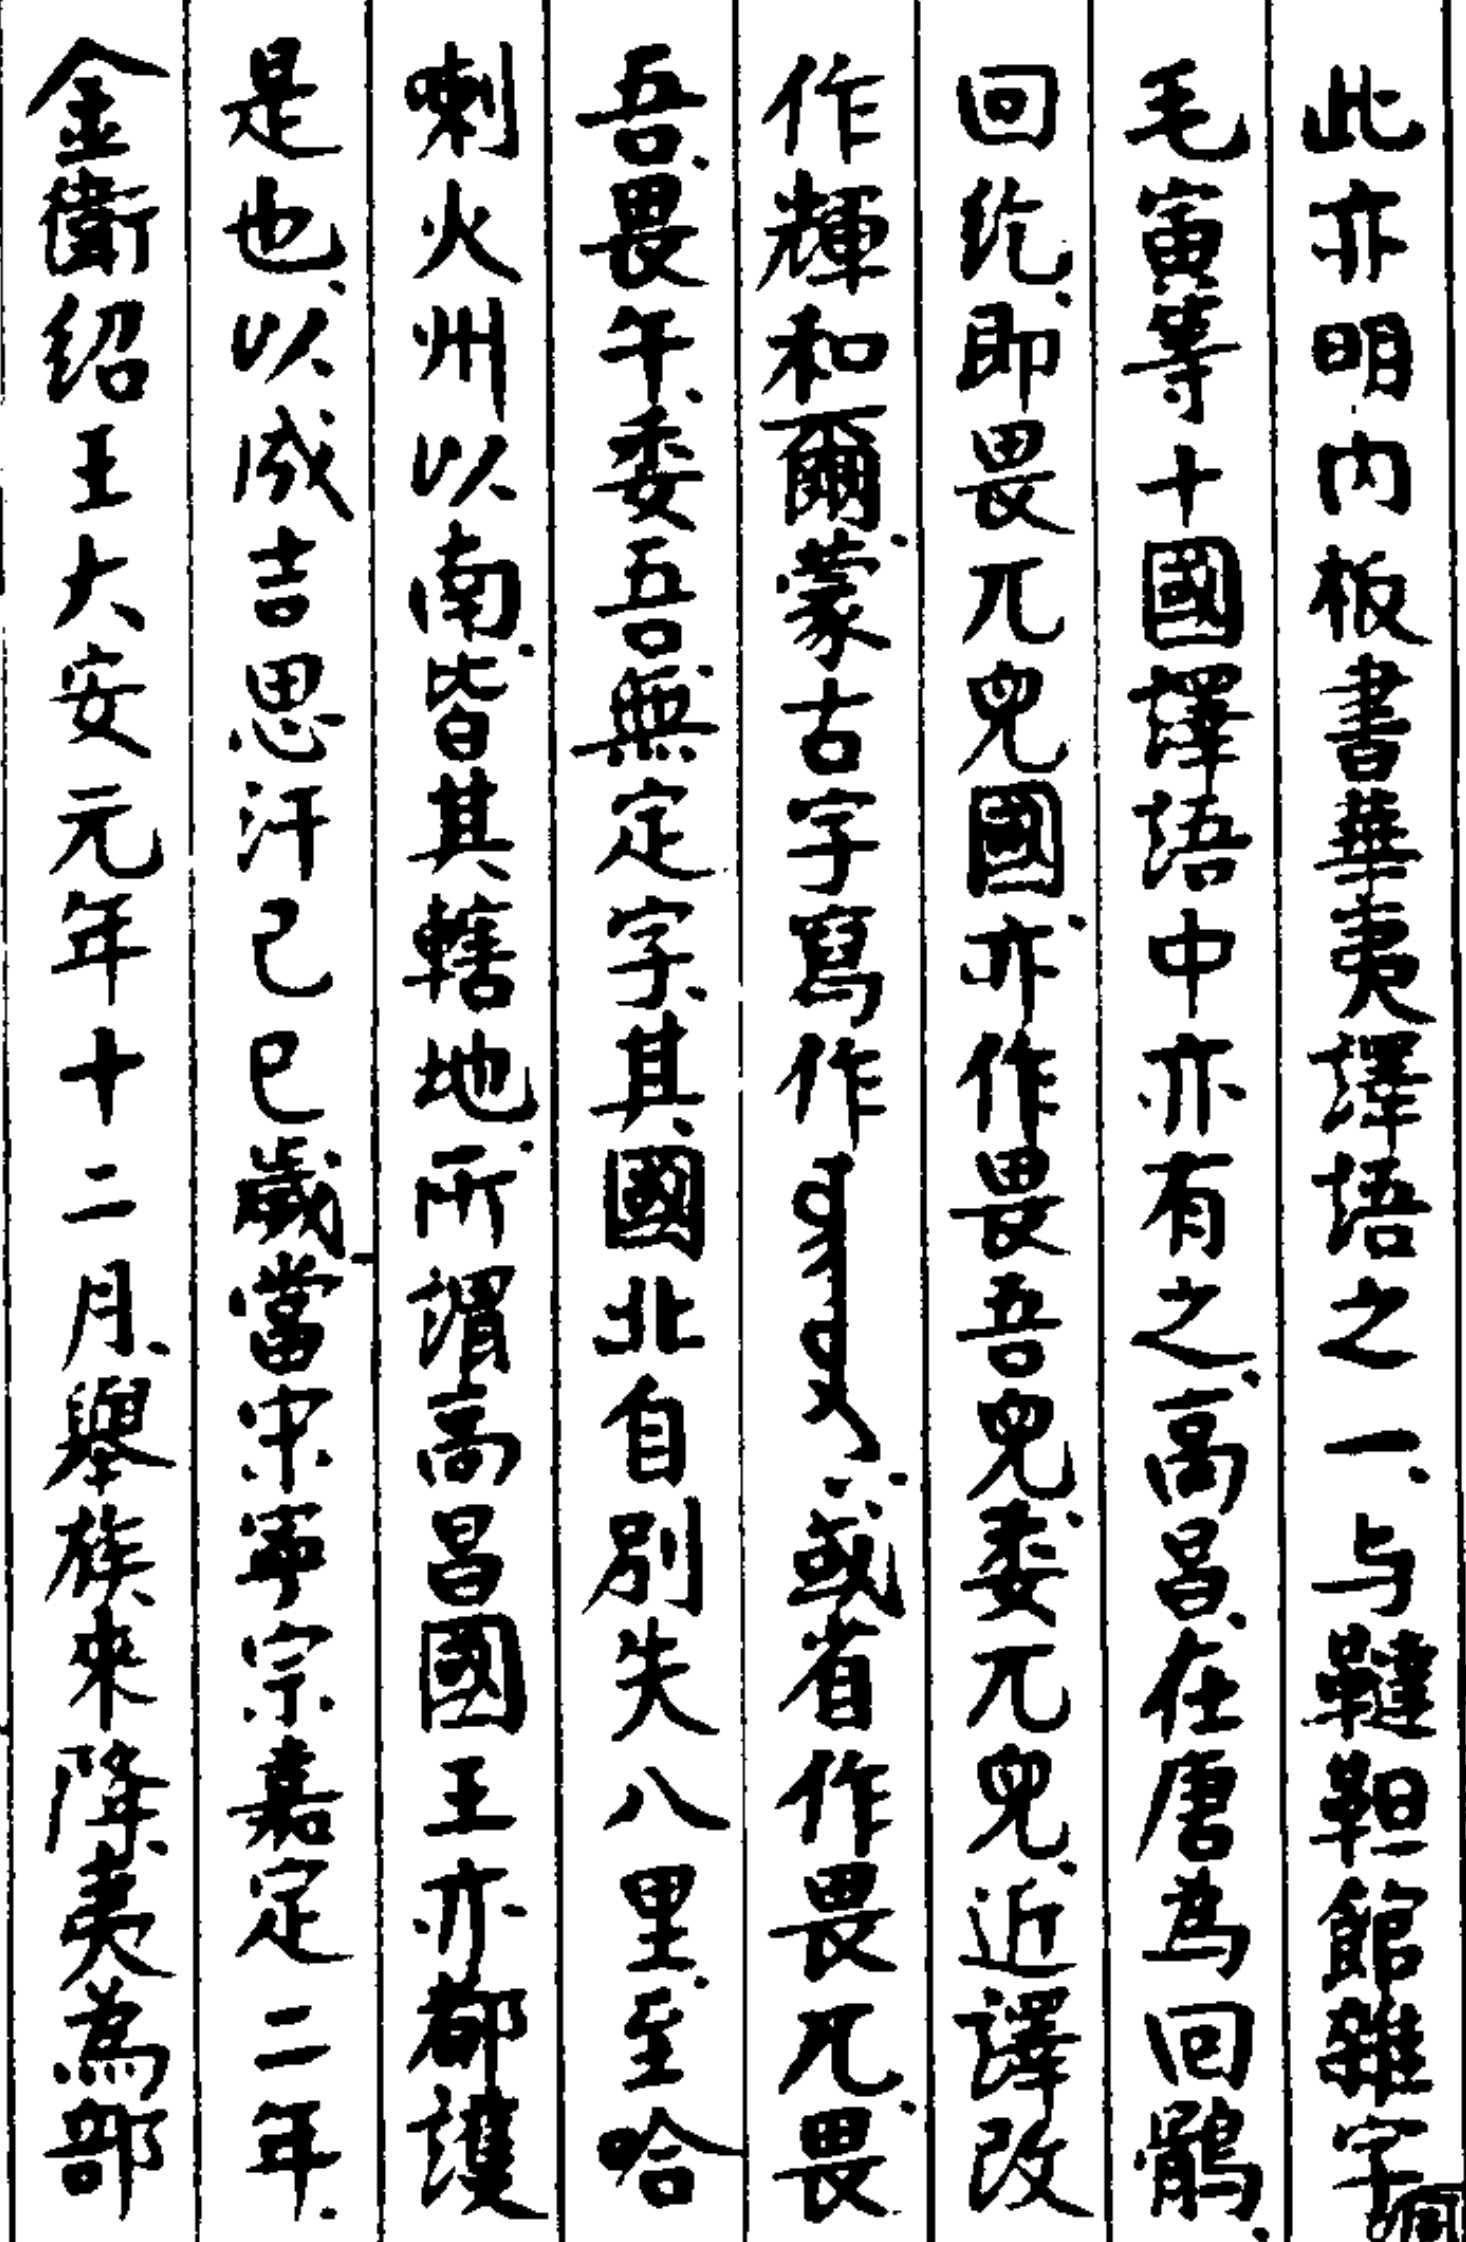 此亦明内板書華夷譯語之一、与韃靼館雜字
毛寅等十國譯語中亦有之、高昌、在唐為回鶻、
回纥、即畏兀兒國、亦作畏吾兒、委兀兒、近譯改
作輝和爾、蒙古字寫作、或省作畏兀、畏
吾、畏午、委吾、無定字、其國北自別失八里、至哈
喇火州以南、皆其轄地、所謂高昌國王亦都護
是也、以成吉思汗己巳歲、當宋寧宗嘉定二年、
金衛紹王大安元年十二月、舉族來降、夷為部